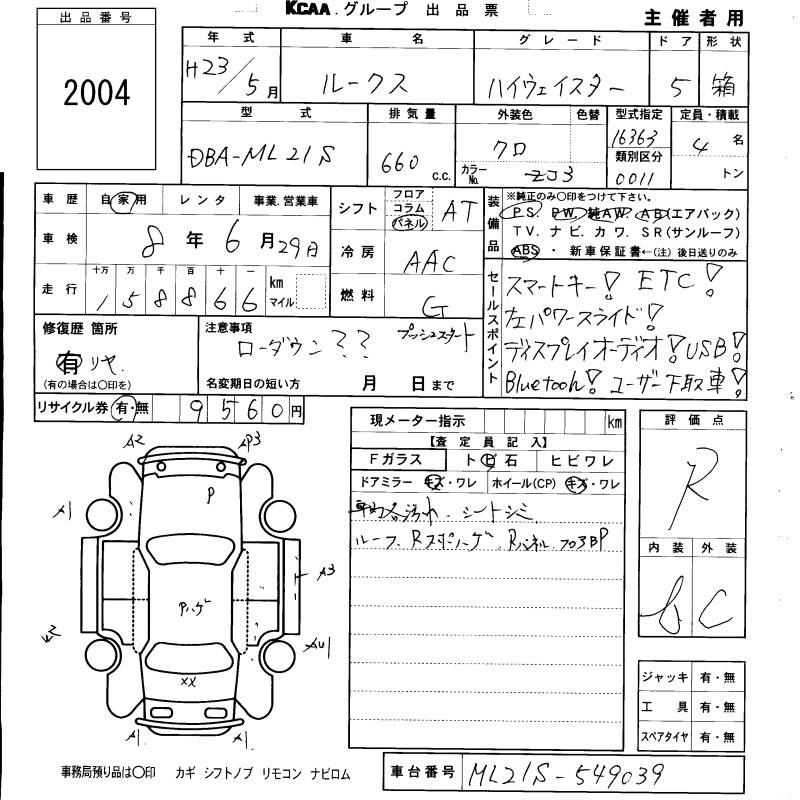 KCAA グループ 出品票
主催者用
出品番号
2004
年式 車名 グレード ドア 形状
H23/5月 ルークス ハイウェイスター 5 箱
型式 排気量 外装色 色替 型式指定 定員・積載
DBA-ML21S 660 c.c. クロ 16363 4名
カラーNo. ZJ3 類別区分 0011 トン
車歴 自家用 レンタ 事業.営業車
車検 8年6月29日
走行 十万 万 千 百 十 一 km マイル
158866
シフト フロア コラム パネル AT
冷房 AAC
燃料 G
装備品 ※純正のみ〇印をつけて下さい。
PS. PW. 純AW. AB(エアバック)
TV. ナビ. カワ. SR(サンルーフ)
ABS・新車保証書←(注)後日送りのみ
セールスポイント
スマートキー! ETC!
左パワースライド!
ディスプレイオーディオ! USB!
Bluetooth! ユーザー下取車!
修復歴 箇所
有 リヤ.
(有の場合は〇印を)
注意事項 プッシュスタート
ローダウン??
名変期日の短い方 月 日まで
リサイクル券 有・無 9560円
現メーター指示 km
【査定員記入】
Fガラス ト ビ 石 ヒビワレ
ドアミラー キズ・ワレ ホイール(CP) キズ・ワレ
車内各汚れ. シートシミ
ルーフ. Rスポハゲ. Rパネル
評価点
R
内装 外装
C
ジャッキ 有・無
工具 有・無
スペアタイヤ 有・無
A2
P3
P
A1
A3
Pハゲ
XX
A1
A1
事務局預り品は〇印 カギ シフトノブ リモコン ナビロム
車台番号 ML21S-549039